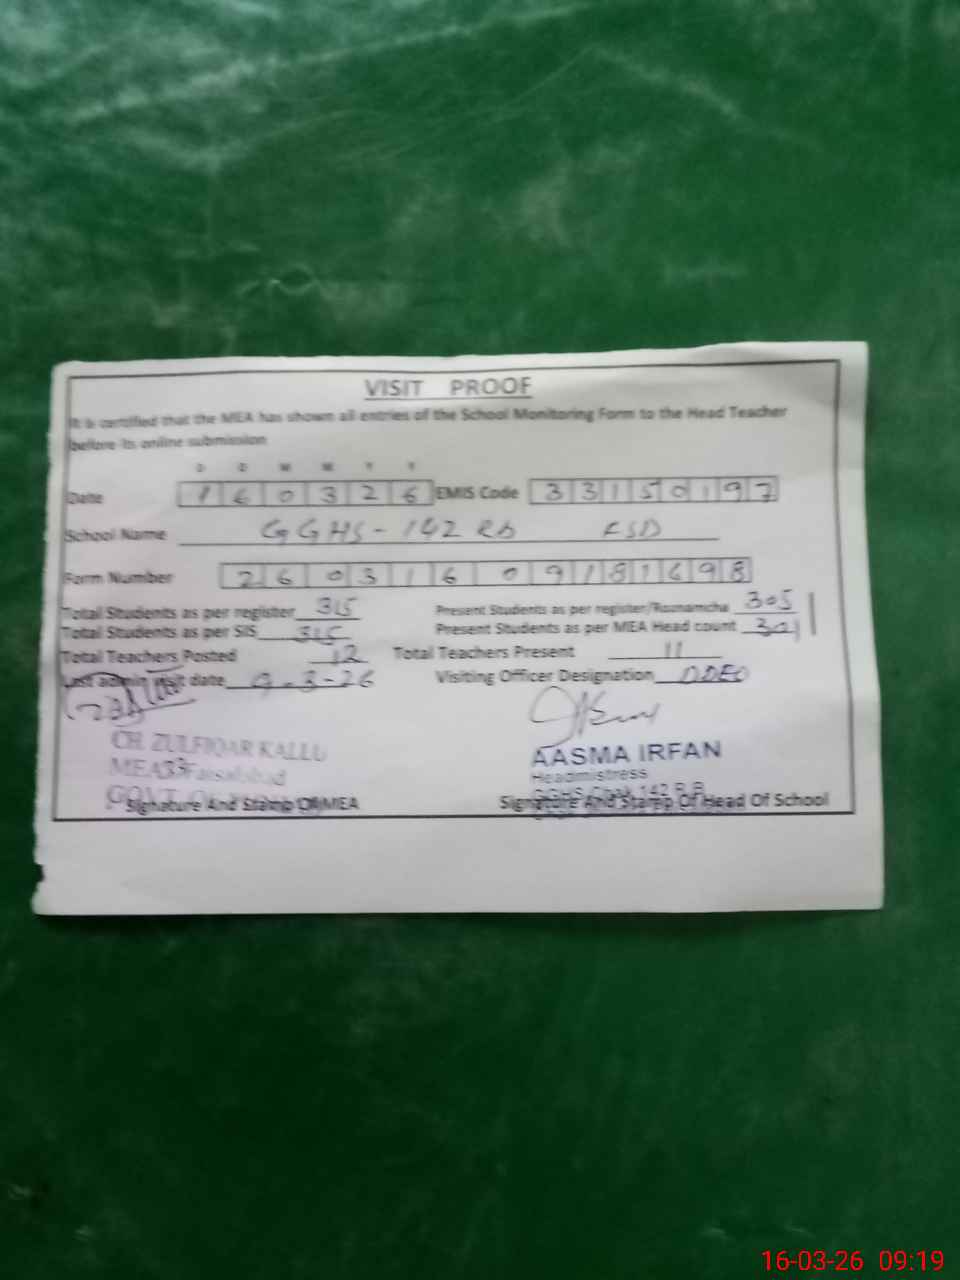 VISIT PROOF
It is certified that the MEA has shown all entries of the School Monitoring Form to the Head Teacher
before its online submission
D D M M Y Y
Date 1 6 0 3 2 6 EMIS Code 3 3 1 5 0 1 9 7
School Name GGHS - 142 RB FSD
Form Number 2 6 0 3 1 6 0 9 1 8 1 6 9 8
Total Students as per register 315 Present Students as per register/Roznamcha 305
Total Students as per SIS 315 Present Students as per MEA Head count 301
Total Teachers Posted 12 Total Teachers Present 11
Last admin visit date 9-3-26 Visiting Officer Designation DDEO
CH. ZULFIQAR KALLU
MEA 33 Faisalabad
GOVT. OF
AASMA IRFAN
Headmistress
GGHS Chak 142 R.B
Signature And Stamp Of MEA Signature And Stamp Of Head Of School
16-03-26 09:19